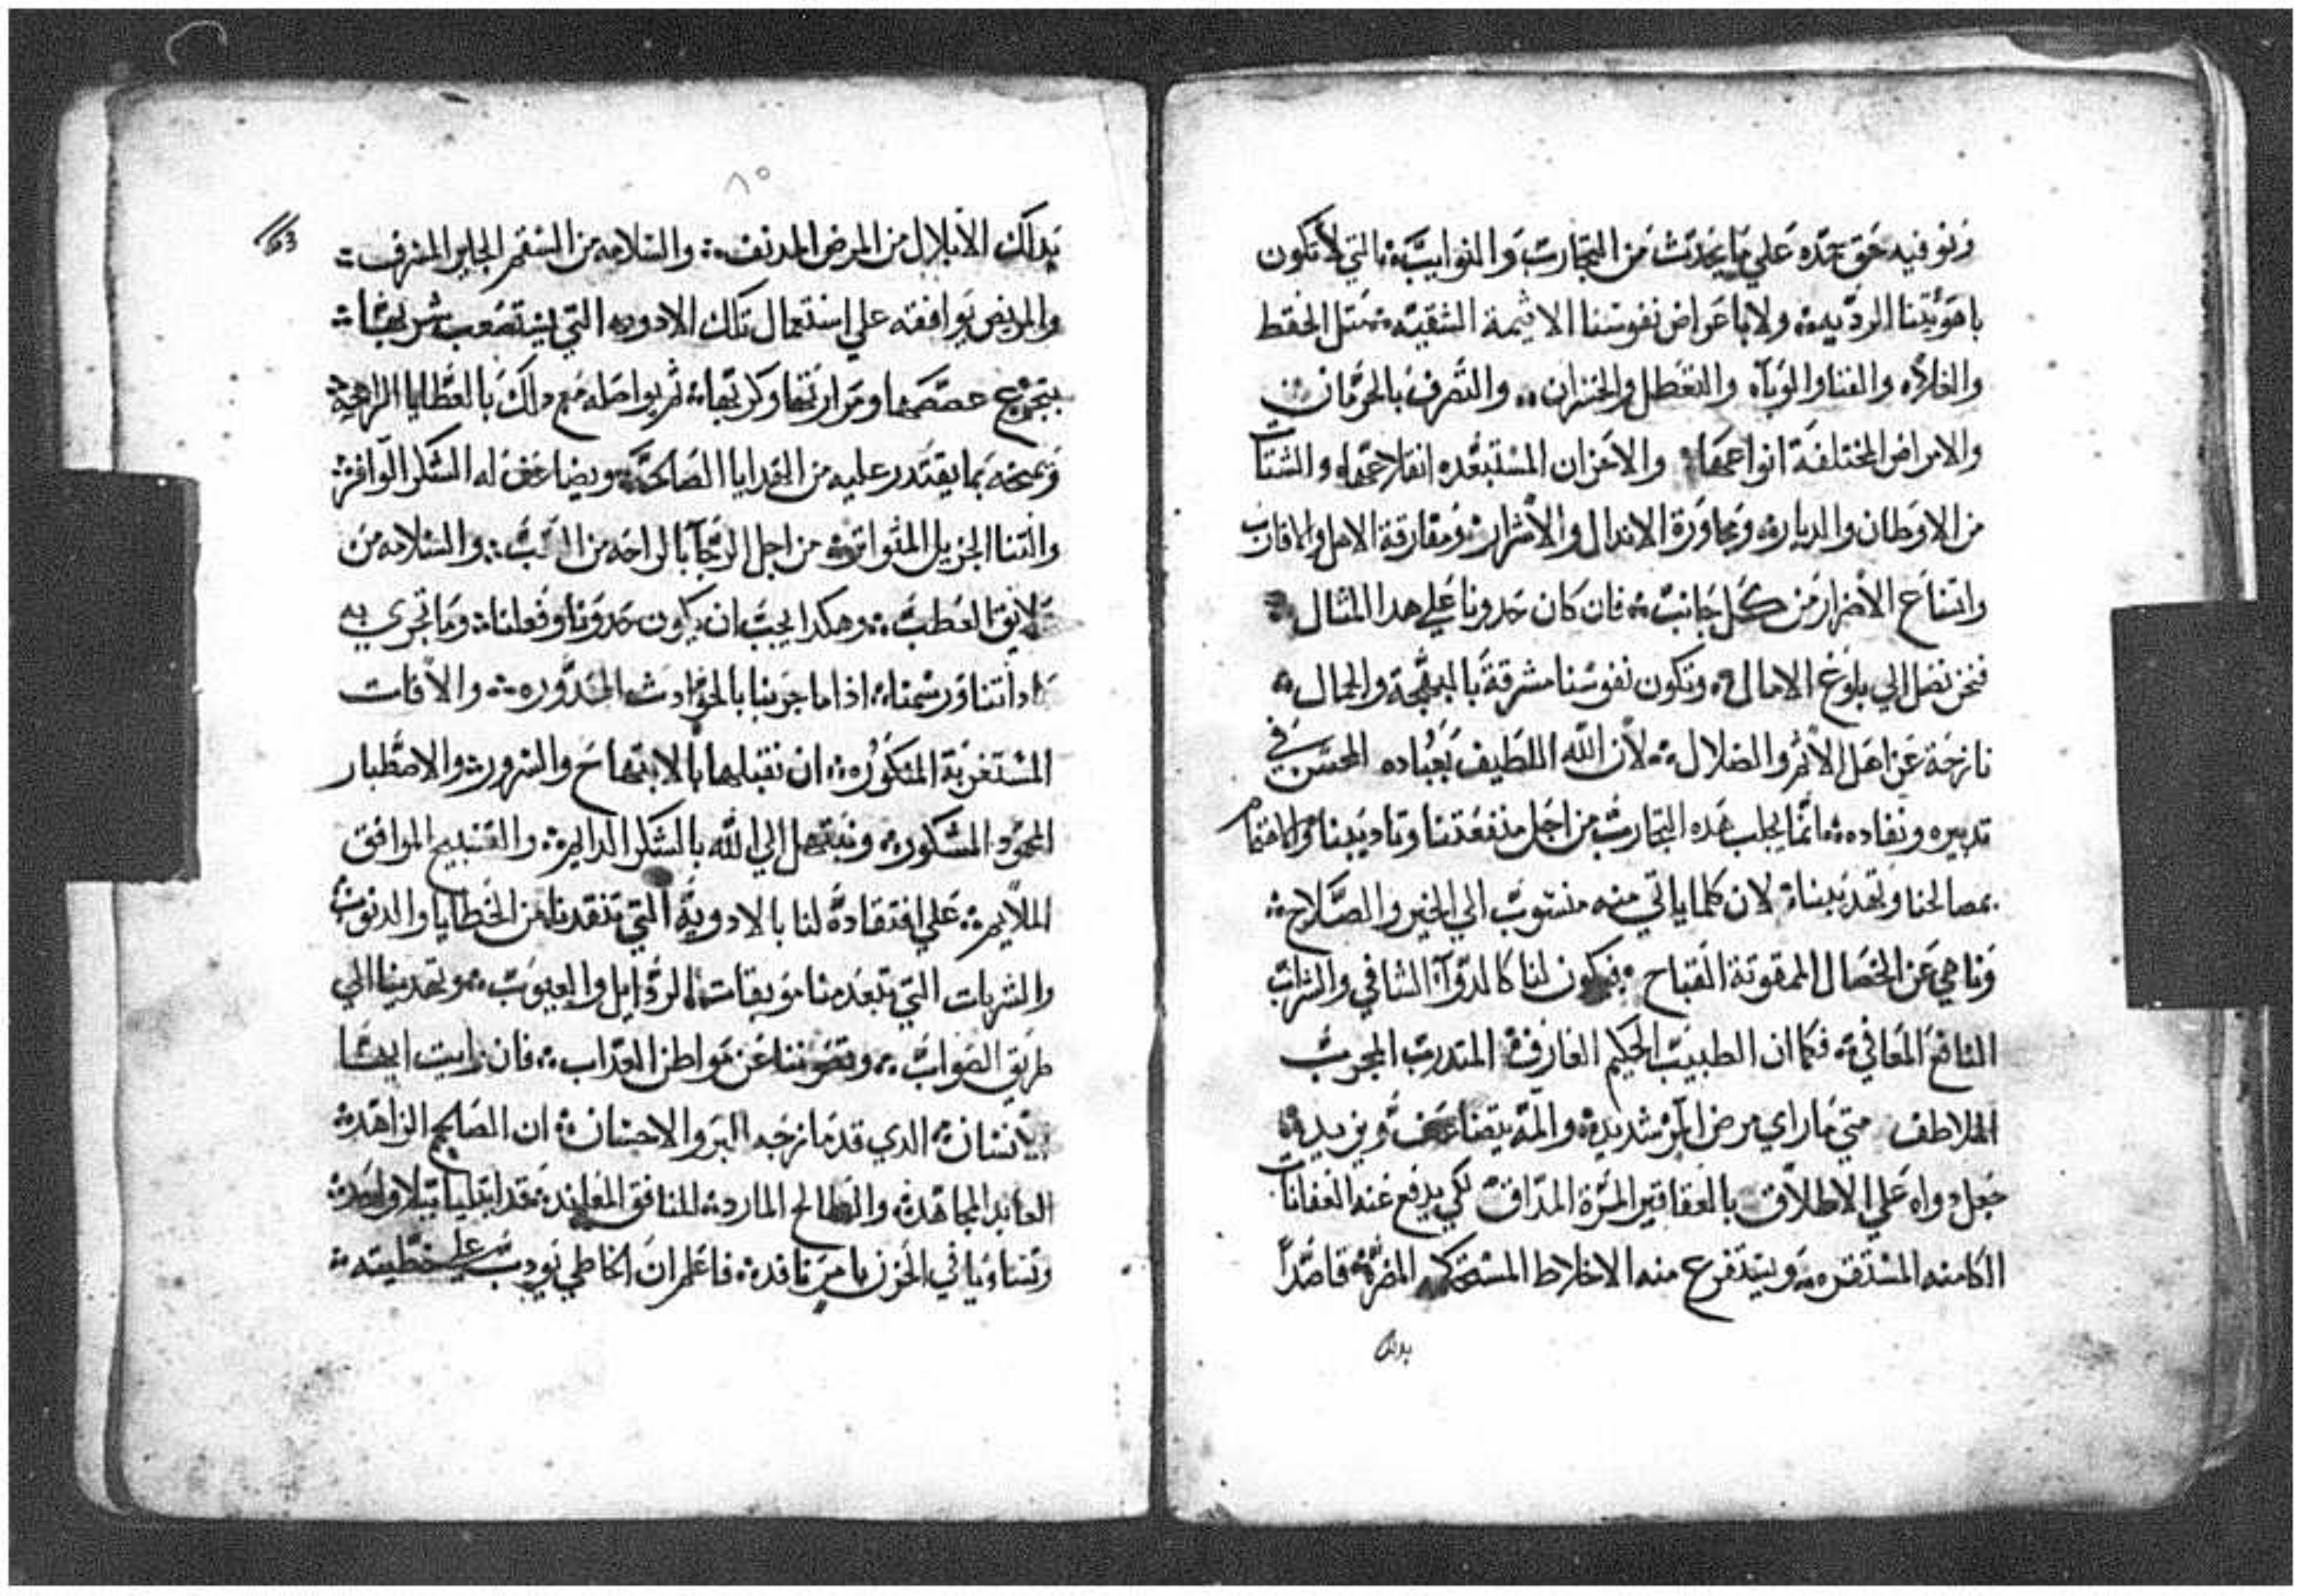 ونوفيه حق حمده علي ما يحدث من التجارب والنوايب: التي لا تكون
باهويتنا الرديه: ولا باغراض نفوسنا الاثيمة الشقيه: مثل القحط
والغلاء والفنا والوباء والتعطل والخسران: والتصرف بالحرمان:
والامراض المختلفة انواعها: والاحزان المستبعده انقلاعها: والشتات
من الاوطان والديار: ومجاورة الاندال والاشرار: ومفارقة الاهل والاقارب
واتساع الاضرار من كل جانب: فان كان حدونا علي هدا المثال:
فنحن نصل الي بلوغ الامال: وتكون نفوسنا مشرقة بالبهجة والجمال:
نازحة عن اهل الاثم والضلال: لان الله اللطيف بعباده المحسن في
تدبيره ونفاده: انما يجلب هده التجارب من اجل منفعتنا وتاديبنا والاهتمام
بمصالحنا وتهديبنا: لان كلما ياتي منه منسوب الي الخير والصلاح:
وناهي عن الخصال الممقوتة القباح: فيكون لنا كالدواء الشافي والشراب
النافع المعافي: فكما ان الطبيب الحكيم العارف: المتدرب المجرب
الملاطف متي ما راي مرض المر شديد: والمه يتضاعف ويزيد:
جعل دواه علي الاطلاق بالعقاقير المرة المداق: لكي يدفع عنه العفانات
الكامنه المستقره: ويستفرغ منه الاخلاط المضرة: قاصداً
بدلك
٨٥
بدلك الابلال من المرض المدنف: والسلامه من السقم الجاير المسرف:
والمريض يوافقه علي استعمال تلك الادويه التي يستصعب شربها:
بتجرع غصصها ومرارتها وكربها: ثم يواصله مع دلك بالعطايا الراهجة:
ويمنحه بما يقتدر عليه من الهدايا الصالحة: ويضاعف له الشكر الوافر:
والثنا الجزيل المتواتر: من اجل الرجاء بالراحه من التعب: والسلامه من
العطب: وهكدا يجب ان يكون حدونا وفعلنا: وما تجري به
عاداتنا ورسمنا: اذا ما جربنا بالحوادث: والافات
المستغربة المنكوره: ان نقبلها بالابتهاج والسرور: والاصطبار
المحمود المشكور: ونبتهل الي الله بالشكر الدايم: والتسبيح الموافق
الملايم: علي افتقاده لنا بالادوية التي تنقدنا من الخطايا والدنوب:
والشربات التي تبعد منا موبقات الردايل والعيوب: وتهدينا الي
طريق الصواب: وتصوننا عن مواطن العداب: فان رايت ايها
الانسان: الدي قد مازجه البر والاحسان: ان الصالح الزاهد:
العابد المجاهد: والطالح المارد: المنافق المعاند: قد ابتليا ببلا واحد:
وتساويا في الحزن نافد: فاعلم ان الخاطي يودب علي خطيته: